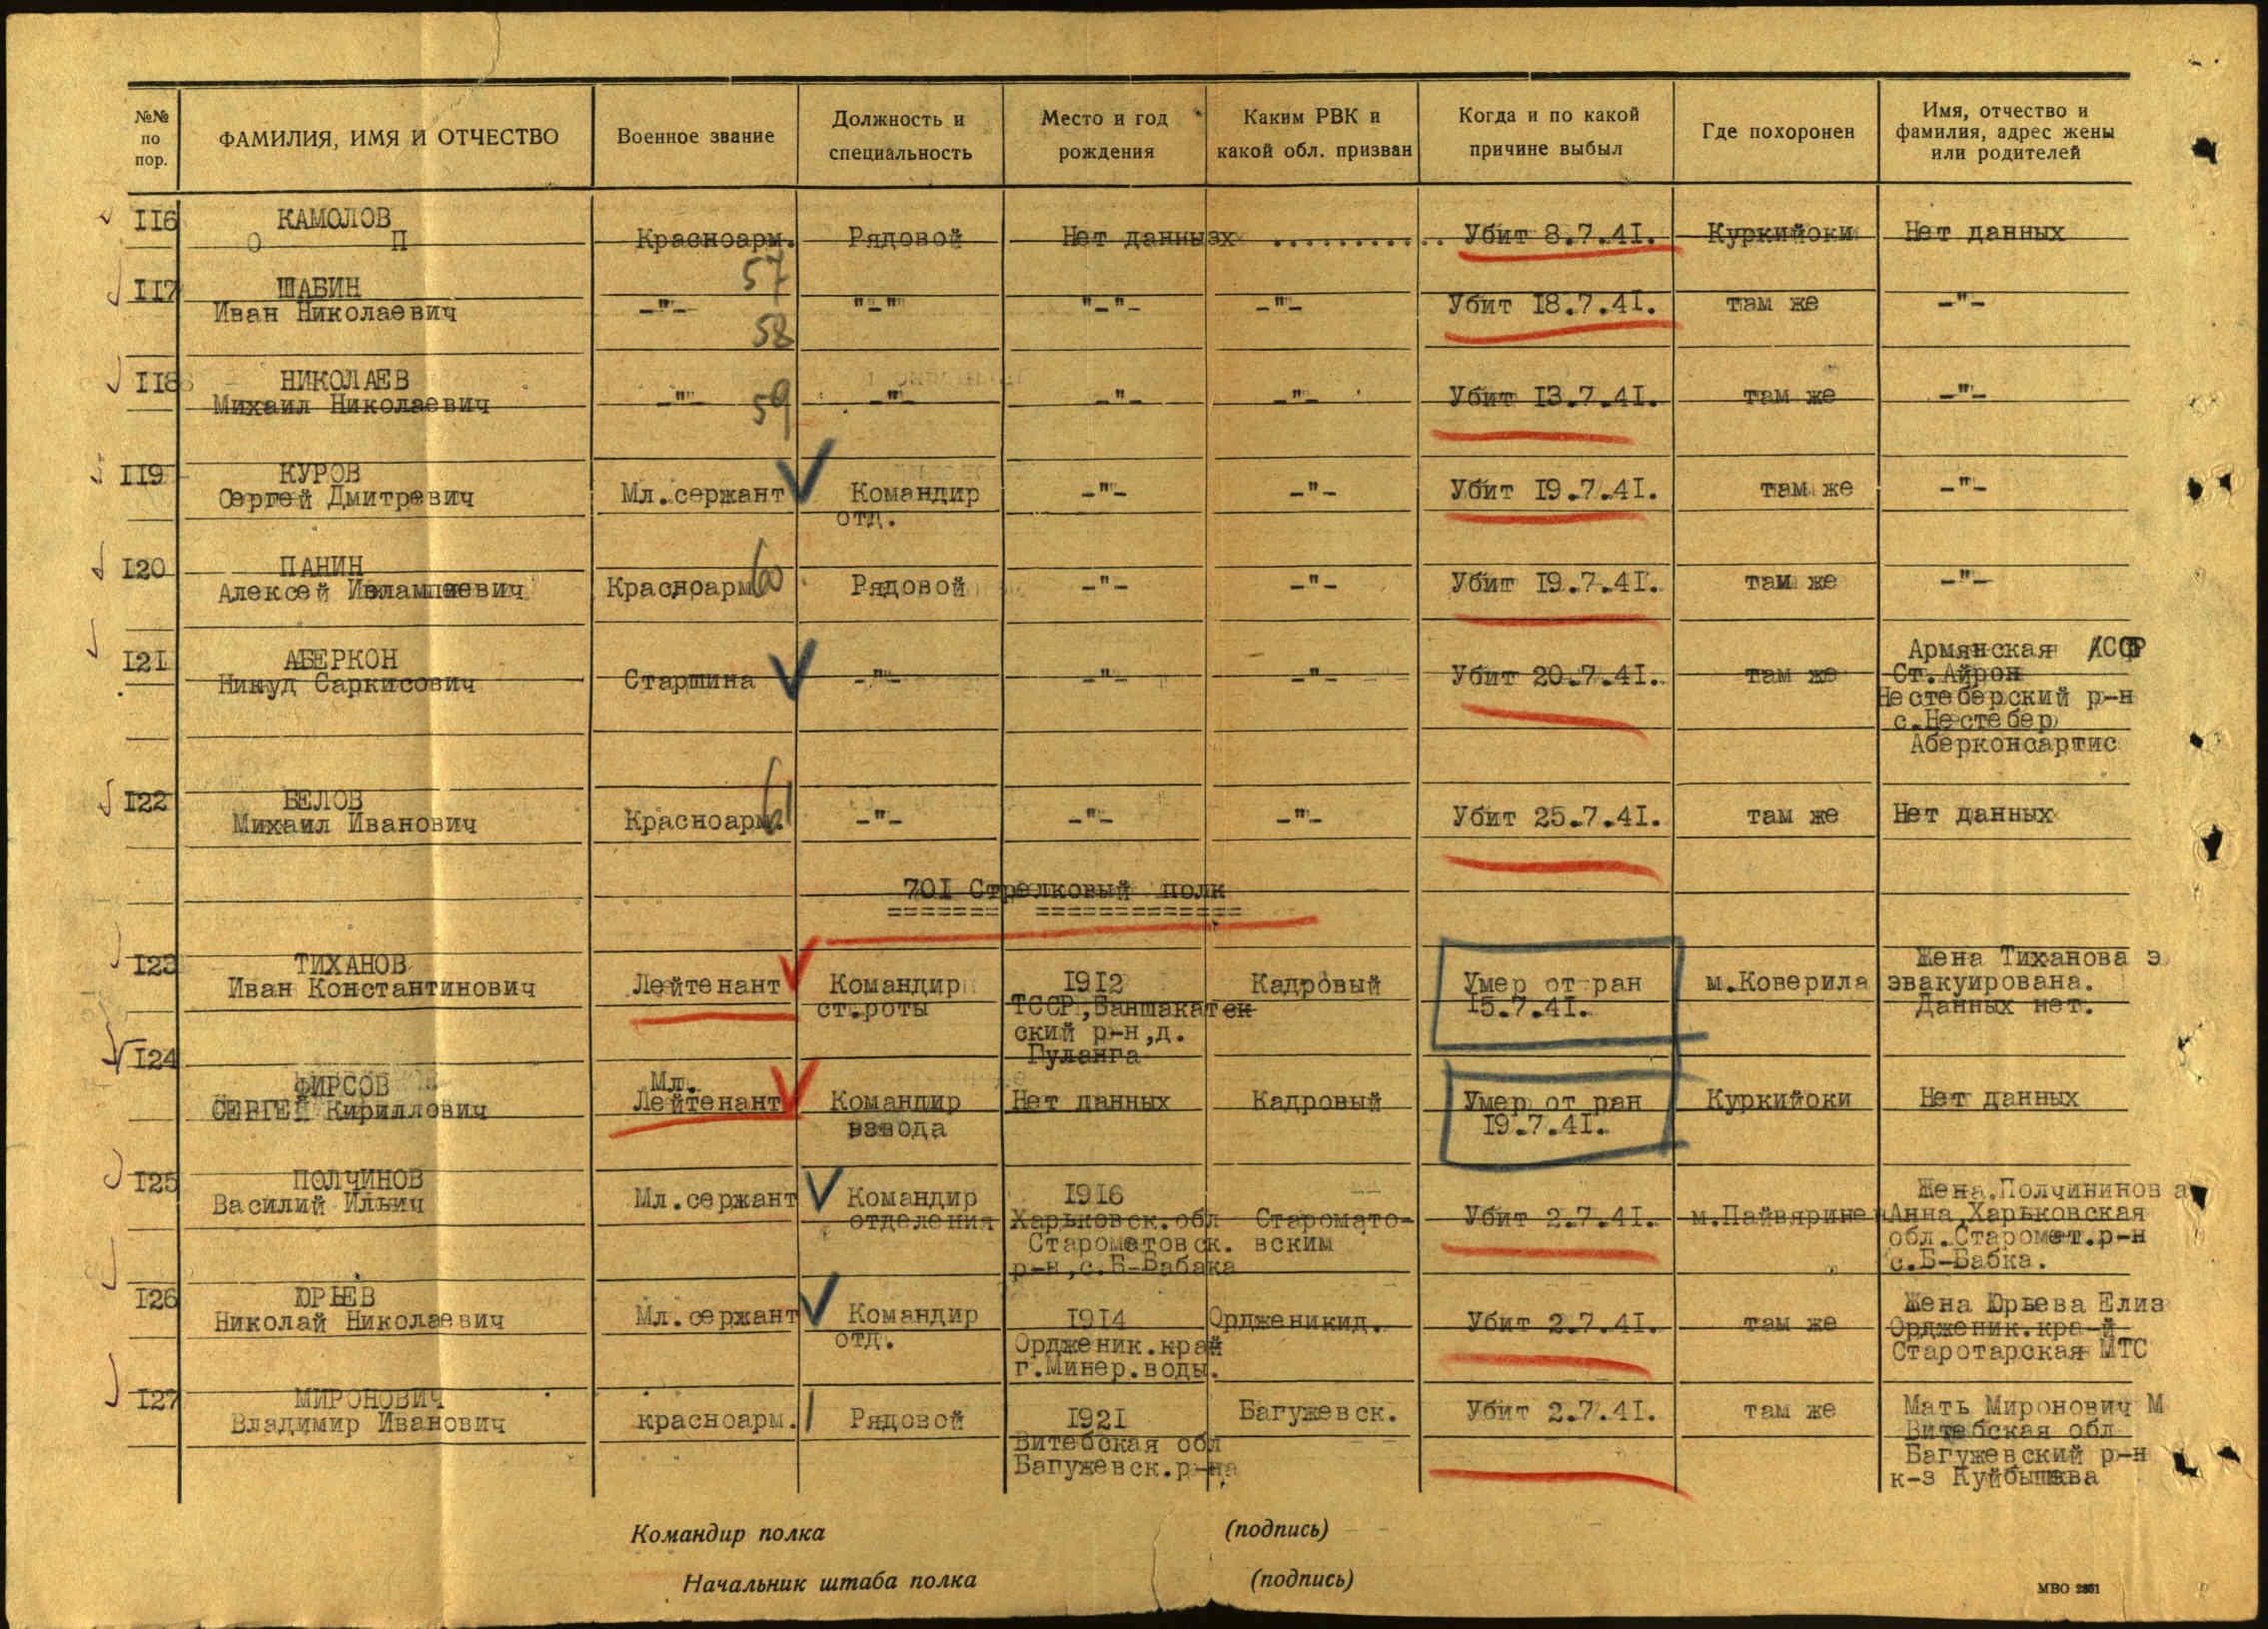 №№ по пор.
ФАМИЛИЯ, ИМЯ И ОТЧЕСТВО
Военное звание
Должность и специальность
Место и год рождения
Каким РВК и какой обл. призван
Когда и по какой причине выбыл
Где похоронен
Имя, отчество и фамилия, адрес жены или родителей
II6 КАМОЛОВ
О П Красноарм. Рядовой Нет данных .......... Убит 8.7.4I. Куркийоки Нет данных
57
II7 ШАБИН
Иван Николаевич -"- "-" "-" -"- Убит I8.7.4I. там же -"-
58
II8 НИКОЛАЕВ
Михаил Николаевич -"- -"- -"- -"- Убит I3.7.4I. там же -"-
59
II9 КУРОВ
Сергей Дмитревич Мл.сержант Командир -"- -"- Убит I9.7.4I. там же -"-
отд.
I20 ПАНИН
Алексей Ивлампиевич Красноарм Рядовой -"- -"- Убит I9.7.4I. там же -"-
60
I2I АБЕРКОН Армянская ССР
Нинуд Саркисович Старшина -"- -"- -"- Убит 20.7.4I. там же Ст.Айрон
Нестеберский р-н
с.Нестебер
Аберконсартис
I22 БЕЛОВ
Михаил Иванович Красноарм. -"- -"- -"- Убит 25.7.4I. там же Нет данных
61
70I Стрелковый полк
======= =============
I23 ТИХАНОВ Жена Тиханова э
Иван Константинович Лейтенант Командир I9I2 Кадровый Умер от ран м.Коверила эвакуирована.
ст.роты ТССР, Ваншакатен I5.7.4I. Данных нет.
ский р-н,д.
Гуланга
I24
ФИРСОВ Мл.
СЕРГЕЙ Кириллович Лейтенант Командир Нет данных Кадровый Умер от ран Куркийоки Нет данных
взвода I9.7.4I.
I25 ПОЛЧИНОВ Жена.Полчининов а
Василий Ильич Мл.сержант Командир I9I6
отделения Харьковск.обл Старомато- Убит 2.7.4I. м.Пайвярине Анна,Харьковская
Староматовск. вским обл.Старомат.р-н
р-н,с.Б-Бабака с.Б-Бабка.
I26 ЮРЬЕВ Жена Юрьева Елиз
Николай Николаевич Мл.сержант Командир I9I4 Ордженикид. Убит 2.7.4I. там же Ордженик.кра-й
отд. Ордженик.край Старотарская МТС
г.Минер.воды.
I27 МИРОНОВИЧ
Владимир Иванович красноарм. Рядовой I92I Багужевск. Убит 2.7.4I. там же Мать Миронович М
Витебская обл Витебская обл
Багужевск.р-на Багужевский р-н
к-з Куйбышева
Командир полка (подпись)
Начальник штаба полка (подпись)
МВО